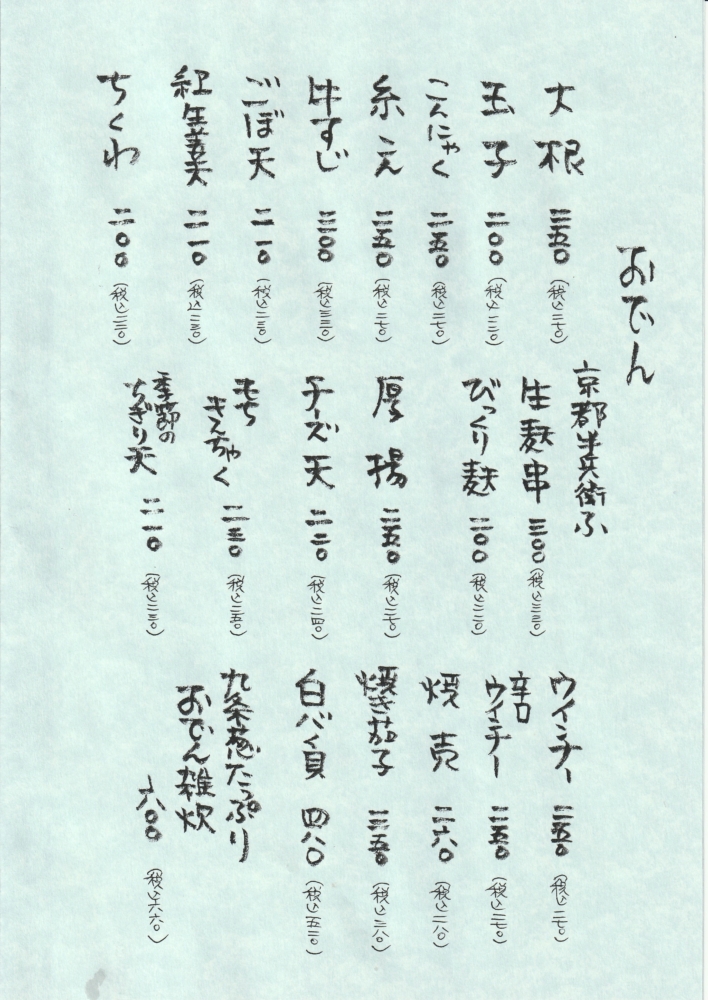 おでん
大根 二五〇 (税込二七〇)
玉子 二〇〇 (税込二二〇)
こんにゃく 二五〇 (税込二七〇)
糸こん 二五〇 (税込二七〇)
牛すじ 三〇〇 (税込三三〇)
ごぼ天 二一〇 (税込二三〇)
紅生姜天 二一〇 (税込二三〇)
ちくわ 二〇〇 (税込二二〇)
京都半兵衛ふ
生麩串 三〇〇 (税込三三〇)
びっくり麩 二〇〇 (税込二二〇)
厚揚 二五〇 (税込二七〇)
チーズ天 二二〇 (税込二四〇)
もちきんちゃく 二三〇 (税込二五〇)
季節の
ちぎり天 二一〇 (税込二三〇)
ウインナー 二五〇 (税込二七〇)
辛口
ウインナー 二五〇 (税込二七〇)
焼売 二六〇 (税込二八〇)
焼き茄子 二五〇 (税込二八〇)
白バイ貝 四八〇 (税込五三〇)
九条葱たっぷり
おでん雑炊
六〇〇 (税込六六〇)